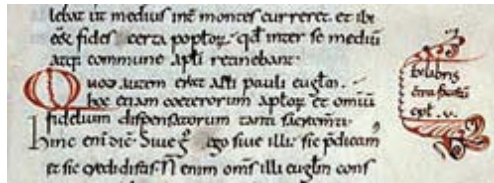 lebat ut medius int̄ montes curreret. et ibi
eēt fides certa poptoꝝ. q̄d inter se mediū
atq; commune apl̄i retinebant.
Quod autem erat apl̄i pauli eugl̄m.
hoc etiam ceterorum aploꝝ et omniū
fidelium dispensatorum tanti sacram̄ti.
hinc eni dic̄. Siue g̊ ego siue illi: sic p̄dicam̄
et sic credidistis. N̄ enim om̄s illi eugl̄m cons
ex libris
cpl̄. v.